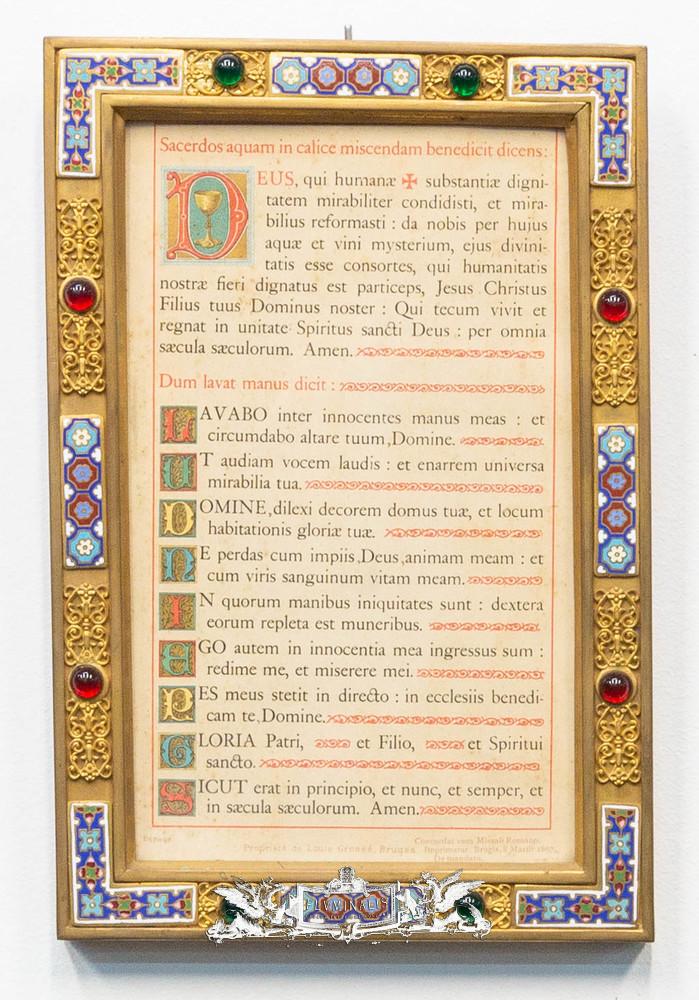 Sacerdos aquam in calice miscendam benedicit dicens:
DEUS, qui humanæ ✠ substantiæ digni-
tatem mirabiliter condidisti, et mira-
bilius reformasti : da nobis per hujus
aquæ et vini mysterium, ejus divini-
tatis esse consortes, qui humanitatis
nostræ fieri dignatus est particeps, Jesus Christus
Filius tuus Dominus noster : Qui tecum vivit et
regnat in unitate Spiritus sancti Deus : per omnia
sæcula sæculorum. Amen.
Dum lavat manus dicit :
LAVABO inter innocentes manus meas : et
circumdabo altare tuum, Domine.
UT audiam vocem laudis : et enarrem universa
mirabilia tua.
DOMINE, dilexi decorem domus tuæ, et locum
habitationis gloriæ tuæ.
NE perdas cum impiis, Deus, animam meam : et
cum viris sanguinum vitam meam.
IN quorum manibus iniquitates sunt : dextera
eorum repleta est muneribus.
EGO autem in innocentia mea ingressus sum :
redime me, et miserere mei.
PES meus stetit in directo : in ecclesiis benedi-
cam te, Domine.
GLORIA Patri, et Filio, et Spiritui
sancto.
SICUT erat in principio, et nunc, et semper, et
in sæcula sæculorum. Amen.
Concordat cum Missali Romano.
Propriété de Louis Grossé, Bruges. Imprimatur. Brugis, 8 Martii
De mandato.
FLUMINALIS